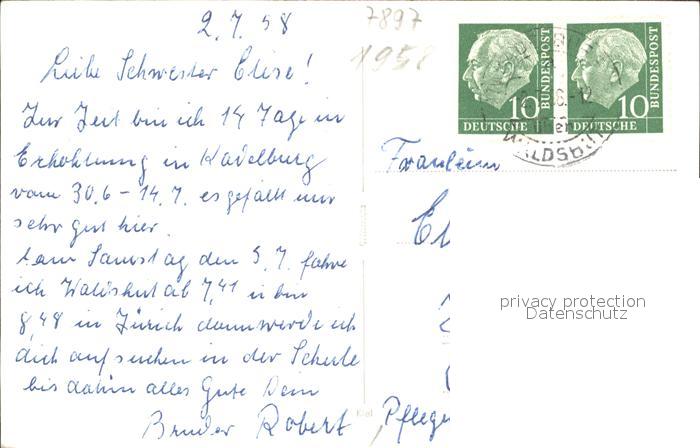 2.7.58
7897
1958
Liebe Schwester Elise!
Zur Zeit bin ich 14 Tage in
Erhohlung in Kadelburg
vom 30.6 – 14.7. es gefällt mir
sehr gut hier.
am Samstag den 5.7. fahre
ich Waldshut ab 7,41 u bin
8,48 in Zürich dann werde ich
dich aufsuchen in der Schule
bis dahin alles Gute Dein
Bruder Robert
10 10
BUNDESPOST BUNDESPOST
DEUTSCHE DEUTSCHE
WALDSHUT
Fräulein
El
privacy protection
Datenschutz
Pflege